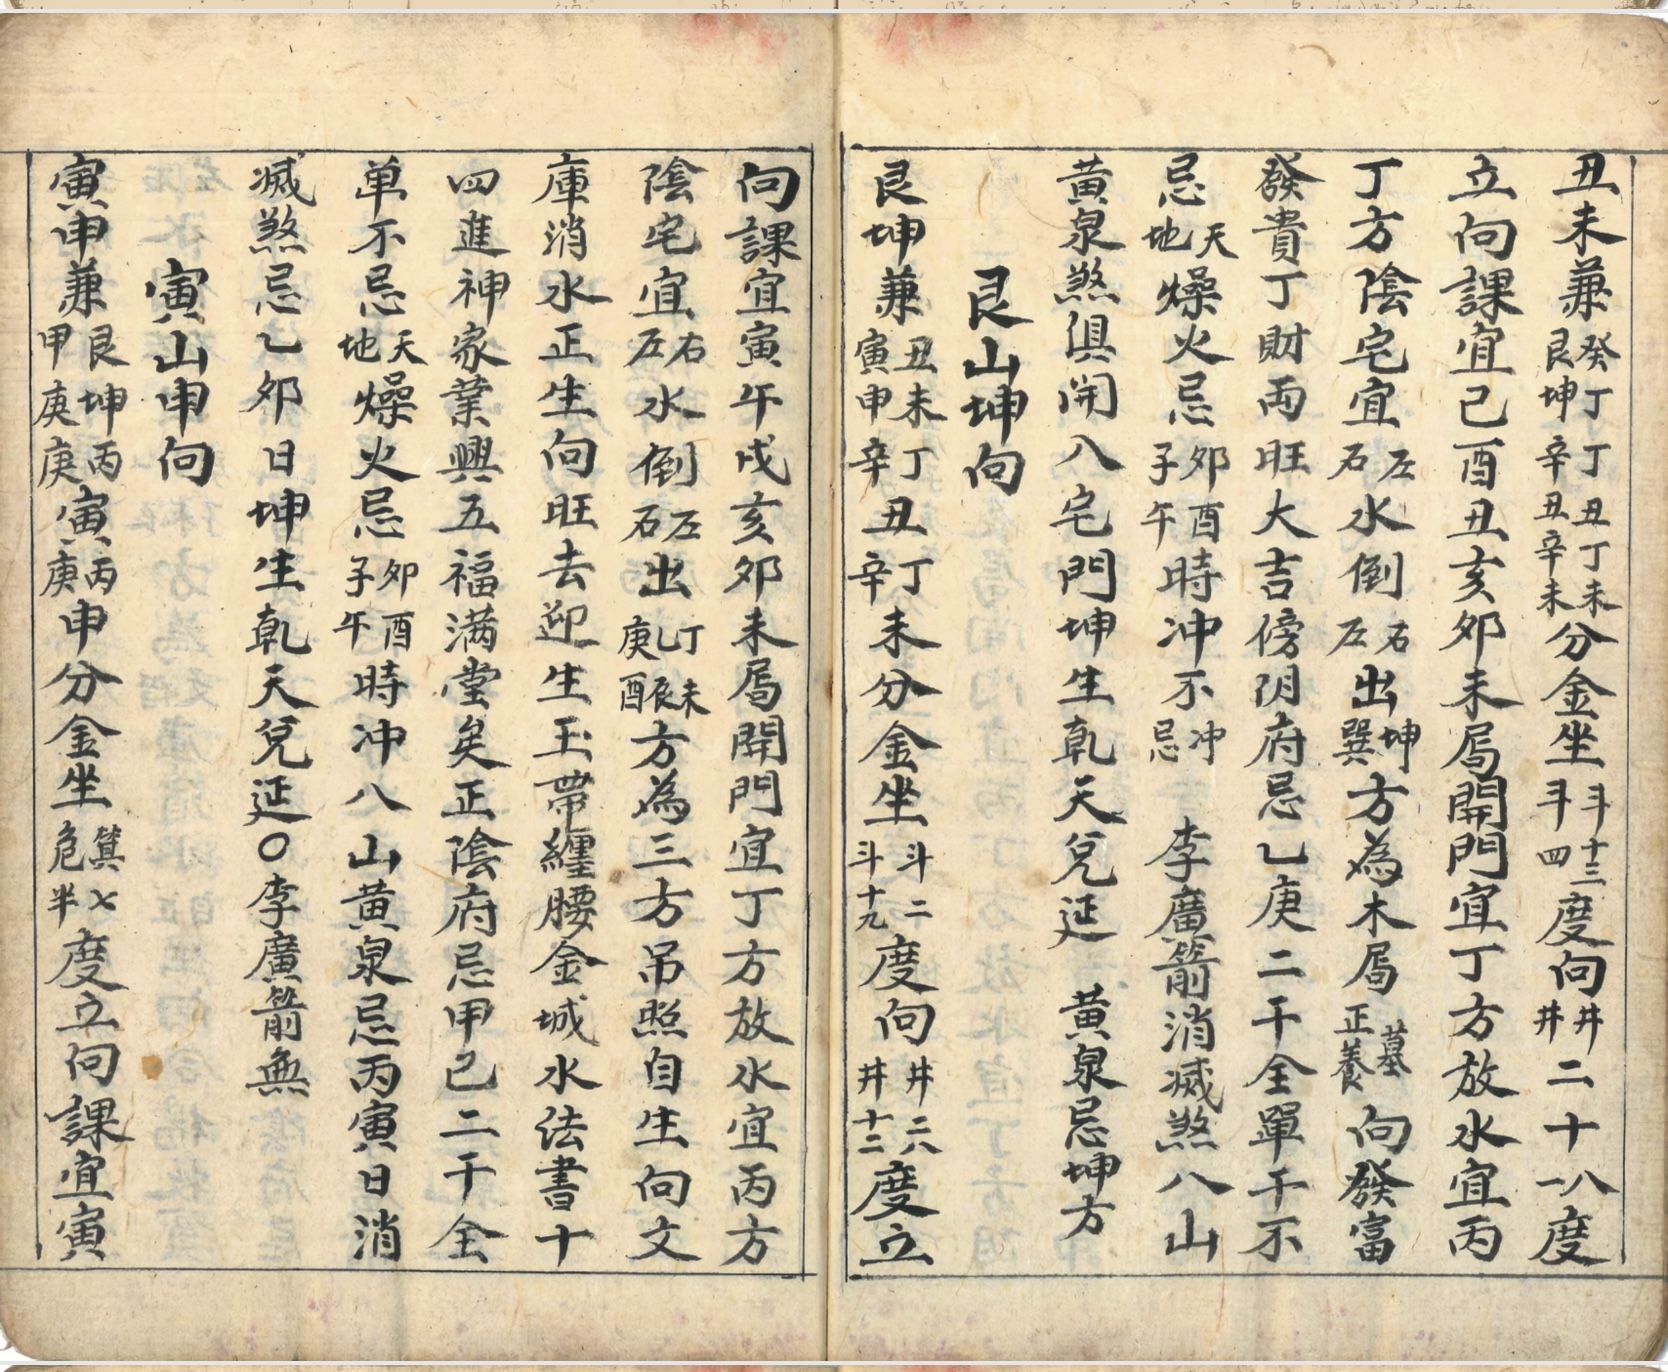 丑未兼癸丁艮坤丁丑丁未辛丑辛未分金坐斗十三斗四度向井二十八井一度
立向課宜己酉丑亥卯未局開門宜丁方放水宜丙
丁方陰宅宜左右水倒右左出坤巽方為木局墓正養向發富
發貴丁財両旺大吉傍阴府忌乙庚二干全單干不
忌天地燥火忌卯酉子午時冲不冲忌 李廣箭消滅煞八山
黃泉煞俱開八宅門坤生乾天兌延 黃泉忌坤方
艮山坤向
艮坤兼丑未寅申丁辛丑丁辛未分金坐斗二斗十九度向井二八井十二度立
向課宜寅午戌亥卯未局開門宜丁方放水宜丙方
陰宅宜右左水倒左右出丁未乙辰庚酉方為三方吊照自生向文
庫消水正生向旺去迎生玉帶纏腰金城水法書十
四進神家業興五福滿堂矣正陰府忌甲己二干全
单不忌天地燥火忌卯酉子午時冲八山黃泉忌丙寅日消
滅煞忌乙卯日坤生乾天兌延○李廣箭無
寅山申向
寅申兼艮坤甲庚丙庚寅丙庚申分金坐箕七危半度立向課宜寅